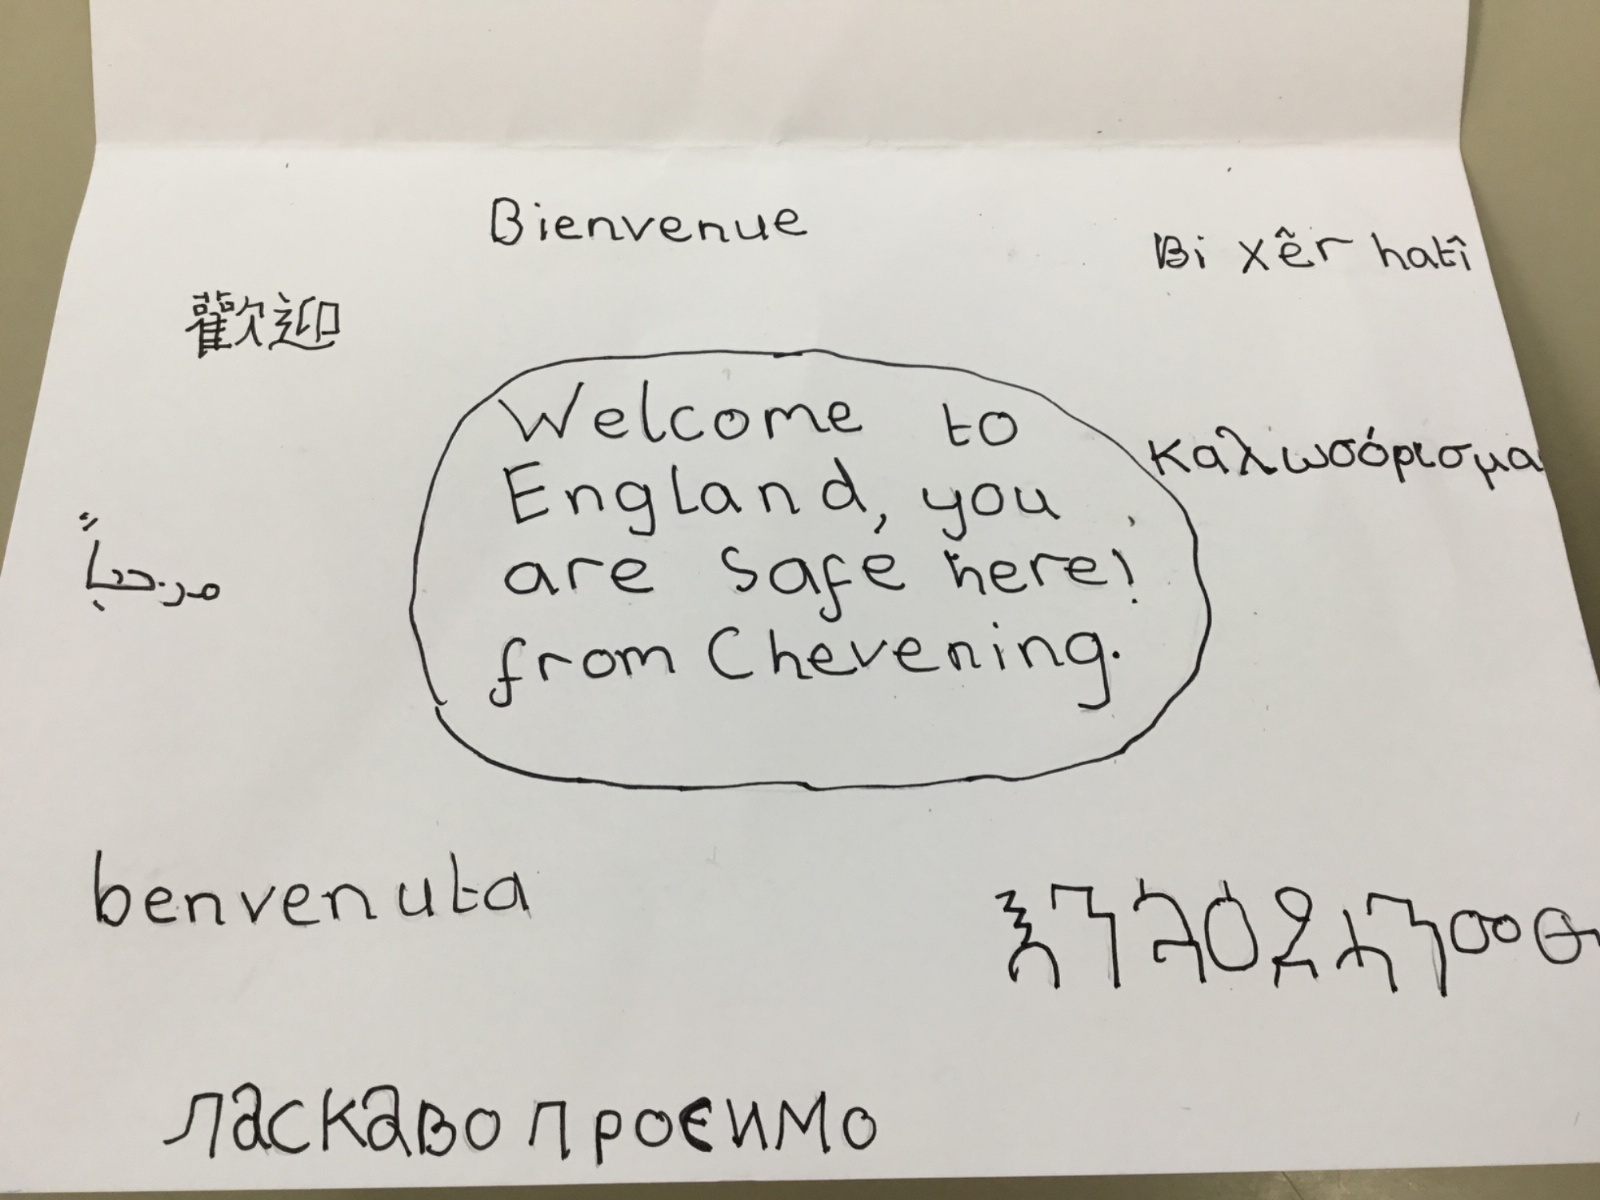 Bienvenue
Bi xêr hatî
歡迎
Welcome to
England, you
are safe here!
from Chevening.
καλωσόρισμα
مرحباً
benvenuta
እንኳን ደህና መጡ
ласкаво просимо